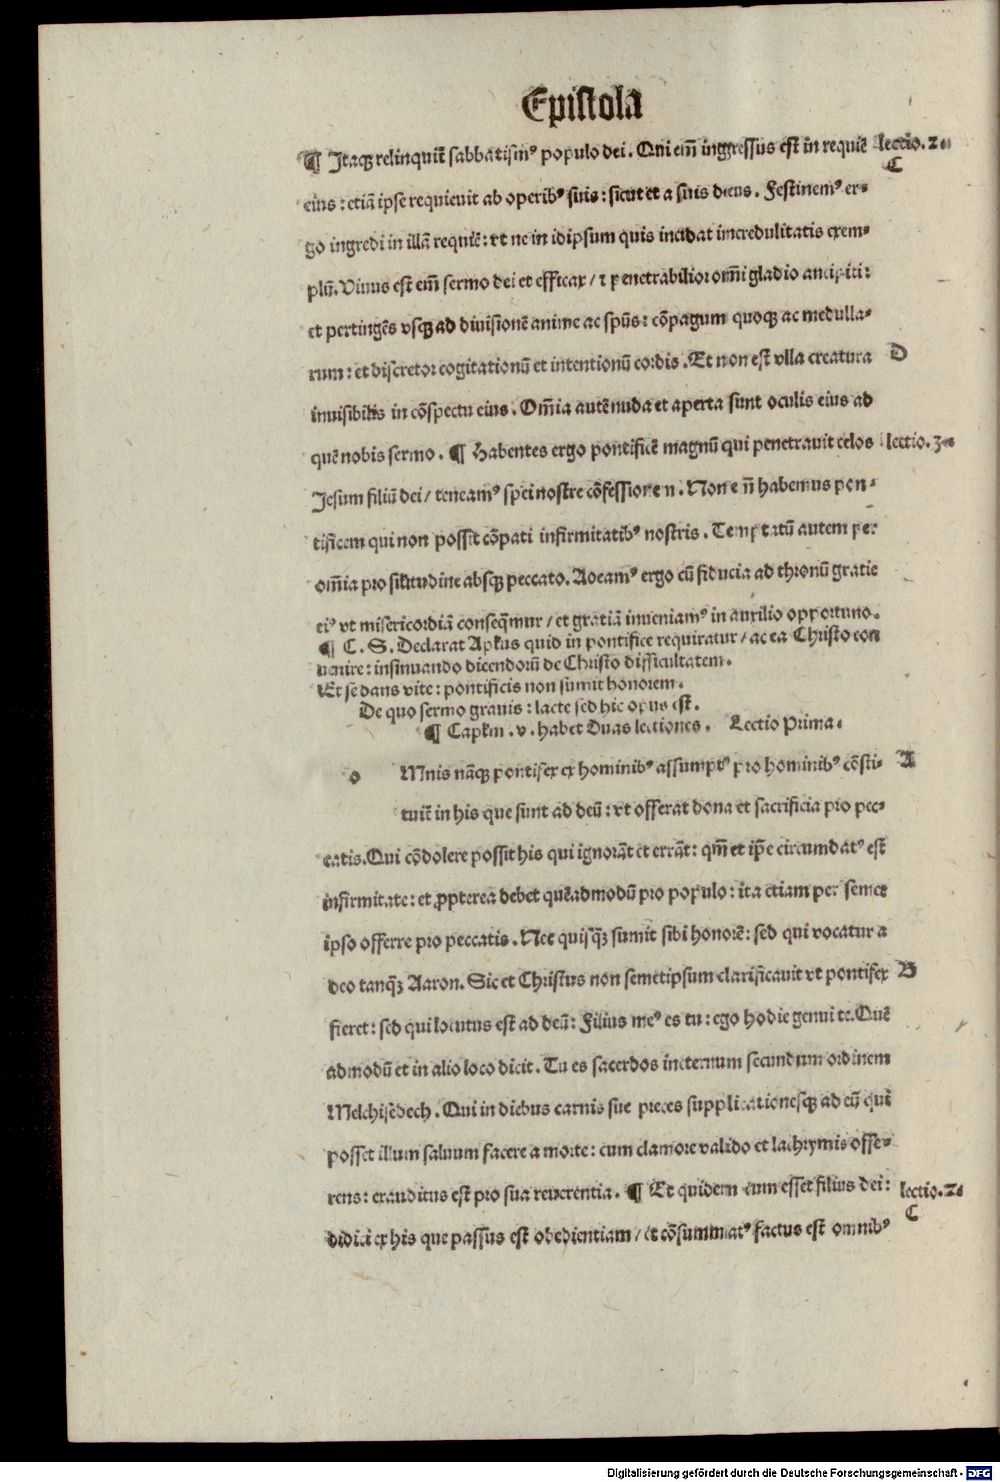 Epistola
¶ Itaqꝫ relinquit̄ sabbatismꝰ populo dei. Qui em̄ ingressus est in requiē lectio. 2.
C
eius: etiā ipse requieuit ab operibꝰ suis: sicut et a suis deus. Festinemꝰ er-
go ingredi in illā requiē: vt ne in idipsum quis incidat incredulitatis exem-
plū. Viuus est em̄ sermo dei et efficax / ⁊ penetrabilior om̄i gladio ancipiti:
et pertingēs vsqꝫ ad diuisionē anime ac spūs: cōpagum quoqꝫ ac medulla-
rum: et discretor cogitationū et intentionū cordis. Et non est vlla creatura D
inuisibilis in cōspectu eius. Om̄ia autē nuda et aperta sunt oculis eius ad
quē nobis sermo. ¶ Habentes ergo pontificē magnū qui penetrauit celos lectio. 3.
Jesum filiū dei / teneamꝰ spei nostre cōfessionem. Non em̄ habemus pon-
tificem qui non possit cōpati infirmitatibꝰ nostris. Temptatū autem per
om̄ia pro silitudine absqꝫ peccato. Adeamꝰ ergo cū fiducia ad thronū gratie
eiꝰ vt misericordiā conseq̄mur / et gratiā inueniamꝰ in auxilio opportuno.
¶ C. S. Declarat Aplus quid in pontifice requiratur / ac ea Christo con
uenire: insinuando dicendorū de Christo difficultatem.
Et se dans vite: pontificis non sumit honorem.
De quo sermo grauis: lacte sed hic opus est.
¶ Caplm .v. habet Duas lectiones. Lectio Prima.
o Mnis nāqꝫ pontifex ex hominibꝰ assumptꝰ pro hominibꝰ cōsti- A
tuit̄ in his que sunt ad deū: vt offerat dona et sacrificia pro pec-
catis. Qui cōdolere possit his qui ignorāt et errāt: qm̄ et ip̄e circumdatꝰ est
infirmitate: et ꝓpterea debet quēadmodū pro populo: ita etiam per semet
ipso offerre pro peccatis. Nec quisqꝫ̄ sumit sibi honorē: sed qui vocatur a
deo tanqꝫ̄ Aaron. Sic et Christus non semetipsum clarificauit vt pontifex B
fieret: sed qui locutus est ad deū: Filius meꝰ es tu: ego hodie genui te. Quē
admodū et in alio loco dicit. Tu es sacerdos ineternum secundum ordinem
Melchisēdech. Qui in diebus carnis sue preces supplicationesqꝫ ad eū qui
posset illum saluum facere a morte: cum clamore valido et lachrymis offe-
rens: exauditus est pro sua reuerentia. ¶ Et quidem cum esset filius dei: lectio. 2.
C
didici ex his que passus est obedientiam / et cōsummatꝰ factus est omnibꝰ
Digitalisierung gefördert durch die Deutsche Forschungsgemeinschaft - DFG